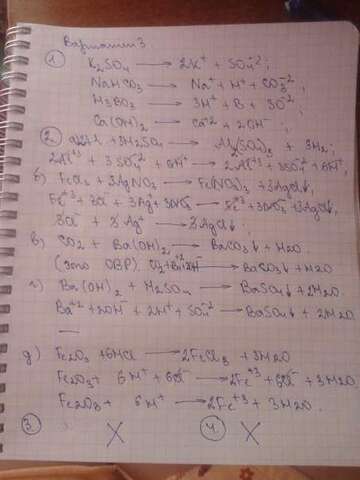 Вариант 3.
① K₂SO₄ → 2K⁺ + SO₄⁻²;
NaHCO₃ → Na⁺ + H⁺ + CO₃⁻²;
H₃BO₃ → 3H⁺ + B + 3O⁻²;
Ca(OH)₂ → Ca⁺² + 2OH⁻;
② а) 2Al + 3H₂SO₄ → Al₂(SO₄)₃ + 3H₂;
б) FeCl₃ + 3AgNO₃ → Fe(NO₃)₃ + 3AgCl↓;
3Cl⁻ + 3Ag⁺ → 3AgCl↓.
в) CO₂ + Ba(OH)₂ → BaCO₃↓ + H₂O.
(это ОВР) → BaCO₃↓ + H₂O
г) Ba(OH)₂ + H₂SO₄ → BaSO₄↓ + 2H₂O.
Ba⁺² + 2OH⁻ + 2H⁺ + SO₄⁻² → BaSO₄↓ + 2H₂O
—
д) Fe₂O₃ + 6HCl → 2FeCl₃ + 3H₂O
Fe₂O₃ + 6H⁺ + 6Cl⁻ → 2Fe⁺³ + 6Cl⁻ + 3H₂O
Fe₂O₃ + 6H⁺ → 2Fe⁺³ + 3H₂O.
③ X ④ X